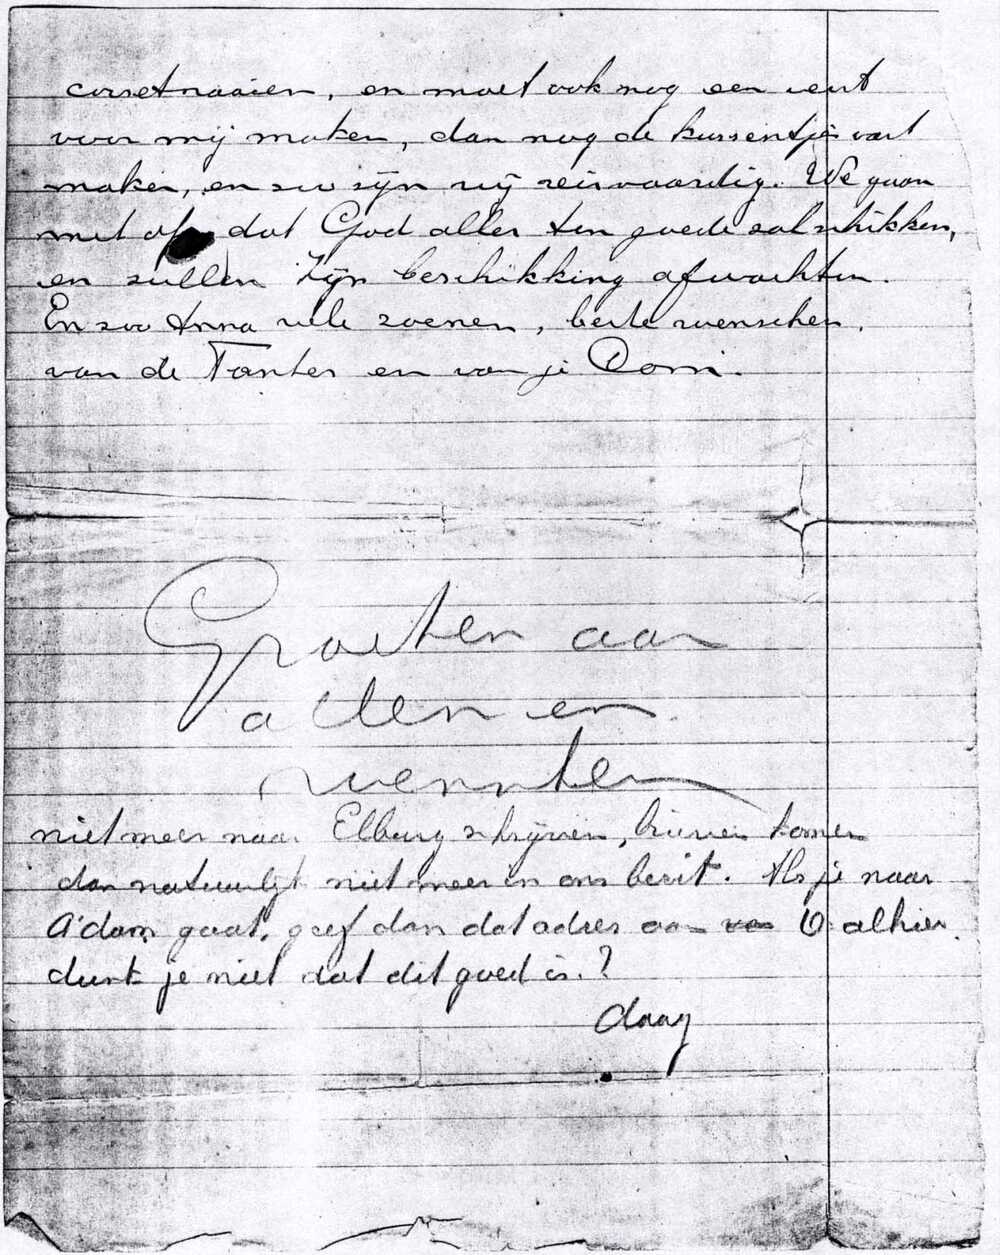 corsetnaaien, en moet ook nog een vest
voor mij maken, dan nog de kussentjes vast
maken, en zoo zijn wij reisvaardig. We gaan
met dat God alles ten goede zal schikken,
en zullen Zijn beschikking afwachten.
En zoo Anna vele zoenen, beste wenschen,
van de Tantes en van je Oom.
Groeten aan
allen en
niet meer naar Elburg schrijven, brieven komen
dan natuurlijk niet meer in ons bezit. Als je naar
A'dam gaat, geef dan dat adres aan O alhier.
dunk je niet dat dit goed is.?
daag